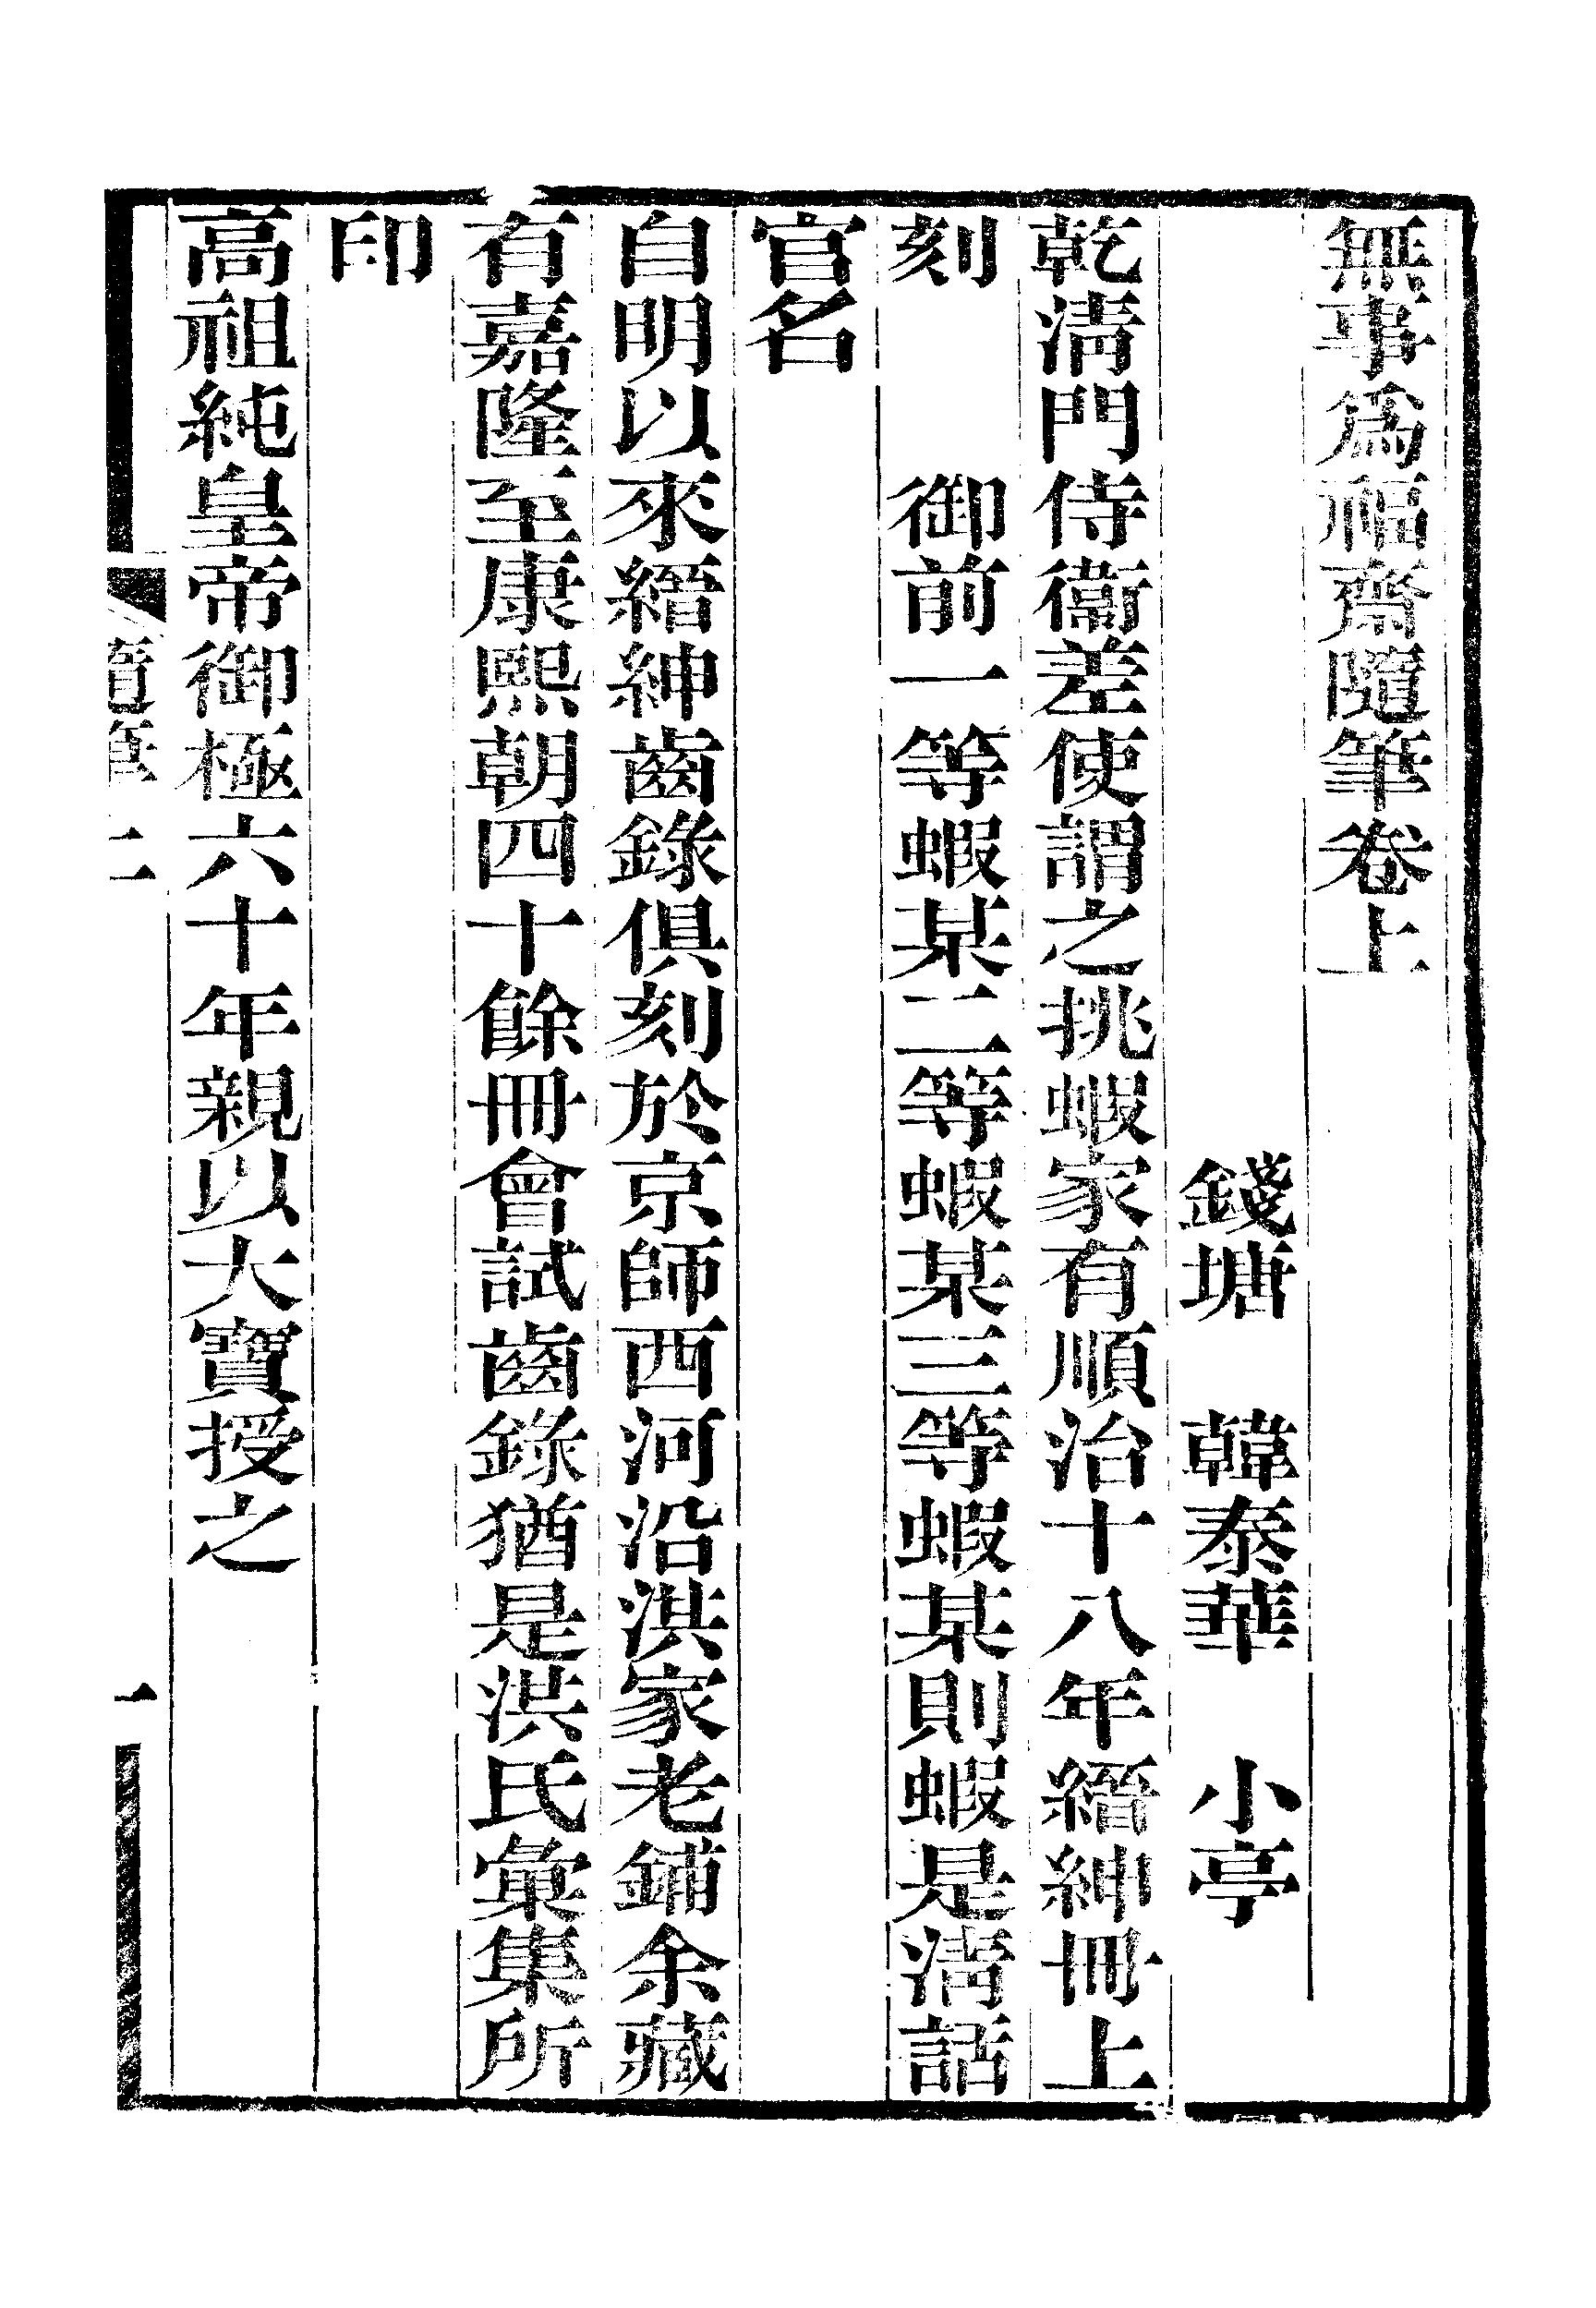 無事爲福齋隨筆卷上
錢塘　韓泰華　小亭
乾淸門侍衞差使謂之挑蝦家有順治十八年縉紳冊上
刻　　御前一等蝦某二等蝦某三等蝦某則蝦是淸話
官名
自明以來縉紳齒錄俱刻於京師西河沿洪家老鋪余藏
有嘉隆至康熙朝四十餘冊會試齒錄猶是洪氏彙集所
印
高祖純皇帝御極六十年親以大寶授之
隨筆上
一